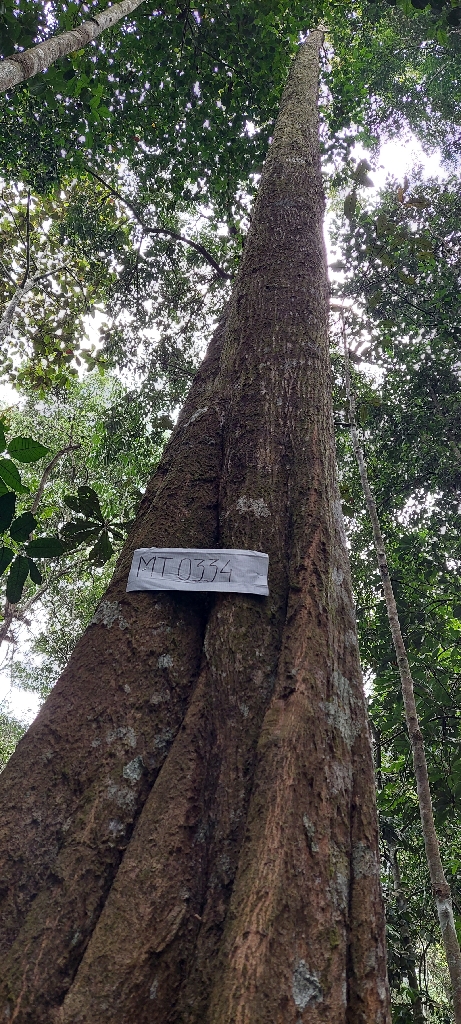 MT 0334